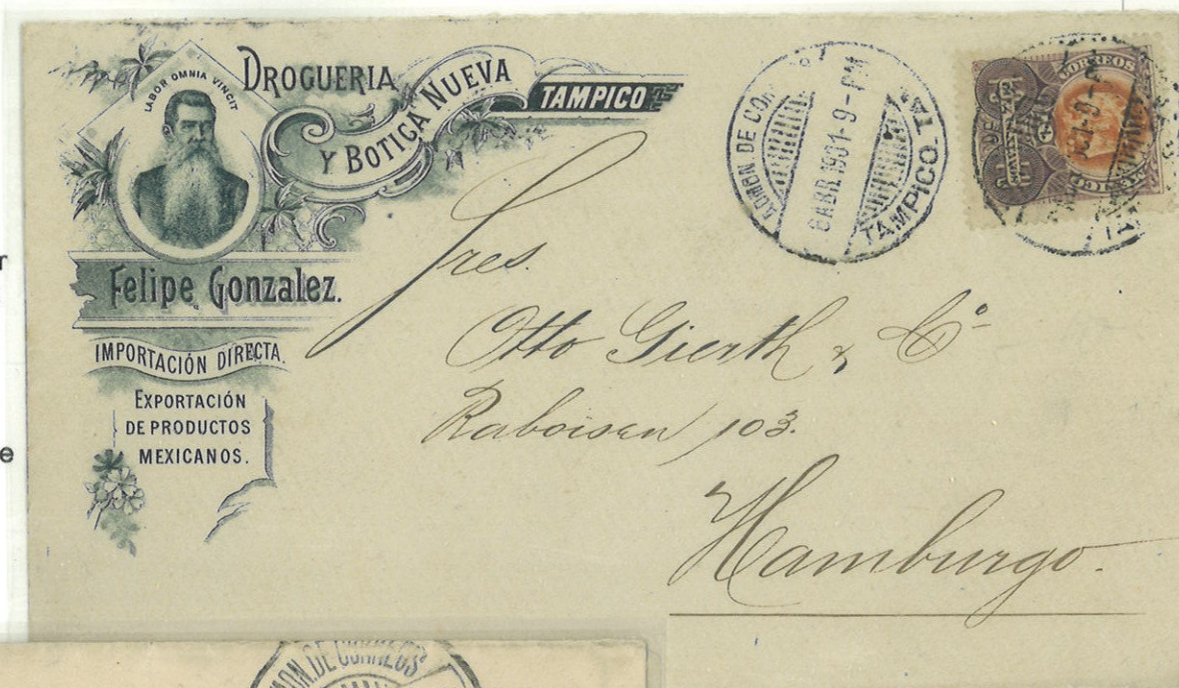 LABOR OMNIA VINCIT
DROGUERIA
Y BOTICA NUEVA
TAMPICO
Felipe Gonzalez.
IMPORTACIÓN DIRECTA.
EXPORTACIÓN
DE PRODUCTOS
MEXICANOS.
ADMON. DE COR
8 ABR. 1901 - 9 - PM
TAMPICO. TA
CORREOS
Sres.
Otto Gierth & Cº
Raboisen 103.
Hamburgo.
MON. DE CORREOS
r
e